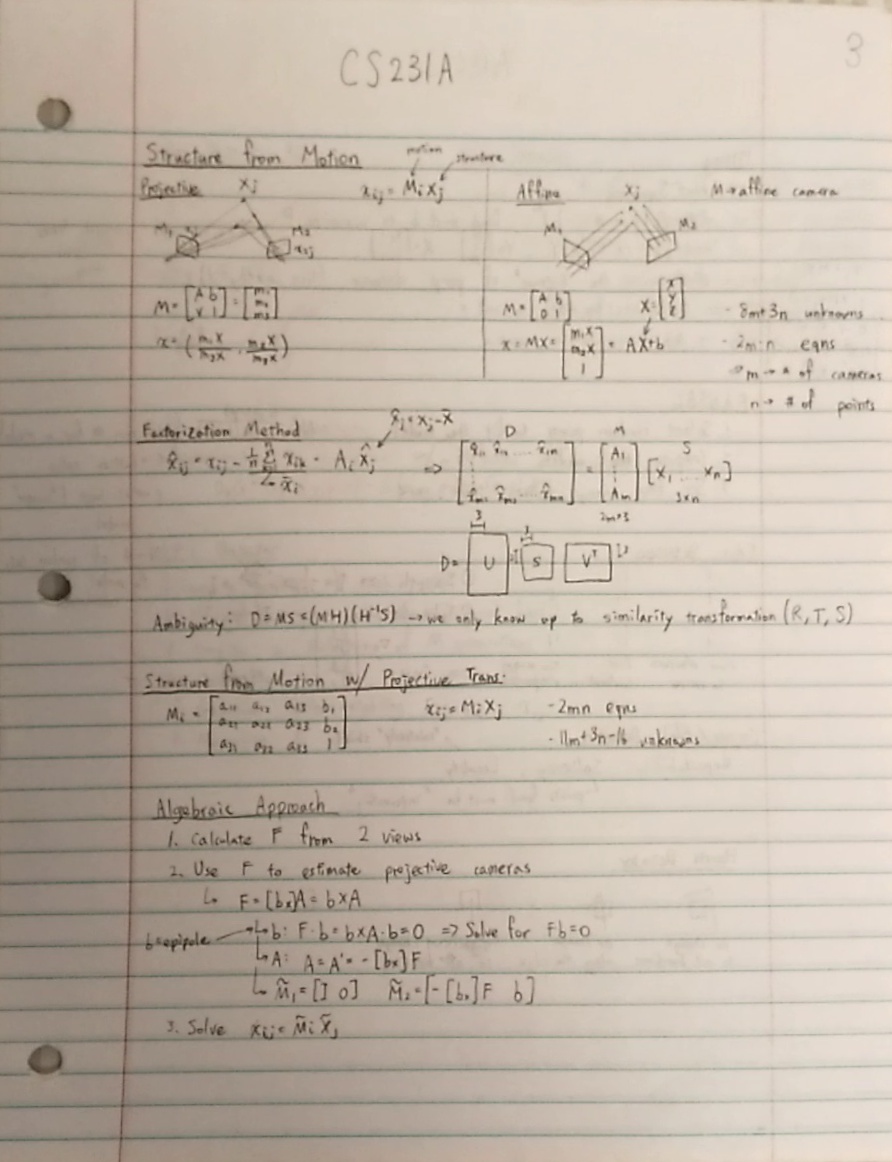 3
CS231A
Structure from Motion
motion structure
Projective Xj xij = Mi Xj Affine Xj M → affine camera
M1 M2 M1 M2
xij
M = [A b; v 1] = [m1; m2; m3] M = [A b; 0 1] X = [x; y; z] - 8m+3n unknowns
x = (m1X/m3X, m2X/m3X) x = MX = [m1X; m2X; 1] = AX+b - 2m·n eqns
m → # of cameras
n → # of points
Factorization Method
x̂j = xj - x̄
x̂ij = xij - 1/n Σ xik = Ai X̂j ⇒ D [x̂11 x̂12 ... x̂1n; ⋮; x̂m1 x̂m2 ... x̂mn] = M [A1; ⋮; Am] S [x1 ... xn]
x̄i 2m×3 3×n
3 3
D = U S VT 3
Ambiguity: D = MS = (MH)(H⁻¹S) → we only know up to similarity transformation (R, T, S)
Structure from Motion w/ Projective Trans.
Mi = [a11 a12 a13 b1; a21 a22 a23 b2; a31 a32 a33 1] xij = Mi Xj - 2mn eqns
- 11m+3n-16 unknowns
Algebraic Approach
1. Calculate F from 2 views
2. Use F to estimate projective cameras
↳ F = [bx]A = b×A
b = epipole → ↳ b: F·b = b×A·b = 0 ⇒ Solve for Fb=0
↳ A: A = A' = -[bx]F
↳ M̃1 = [I 0] M̃2 = [-[bx]F b]
3. Solve xij = M̃i X̃j